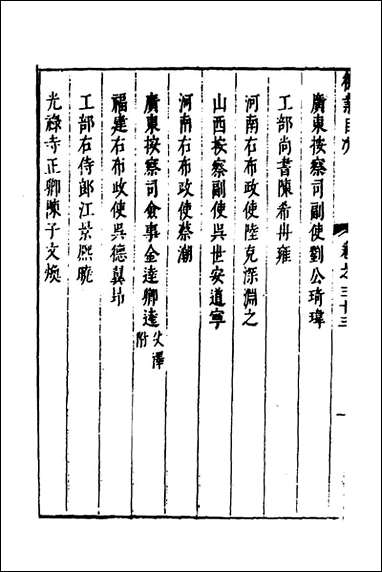 目次
卷之三十三
一
廣東按察司副使劉公琦瑋
工部尚書陳希冉雍
河南右布政使陸克深淵之
山西按察副使吳世安道寧
河南右布政使蔡潮
廣東按察司僉事金達卿逵父澤附
福建右布政使吳德翼昂
工部右侍郎江景熙曉
光祿寺正卿陳子文煥